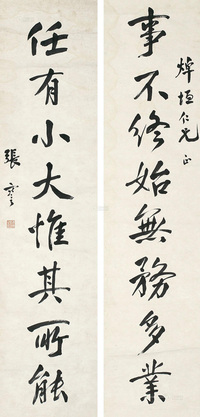 事不終始無務多業
焯垣仁兄正
任有小大惟其所能
張謇